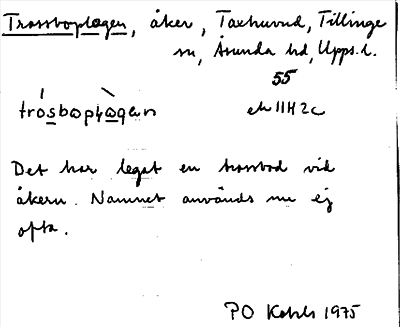 Trossboplogen, åker, Taxhuvud, Tillinge
sn, Åsunda hd, Upps. l.
55
ek 11H2c
Det har legat en trossbod vid
åkern. Namnet används nu ej
ofta.
PO 1975